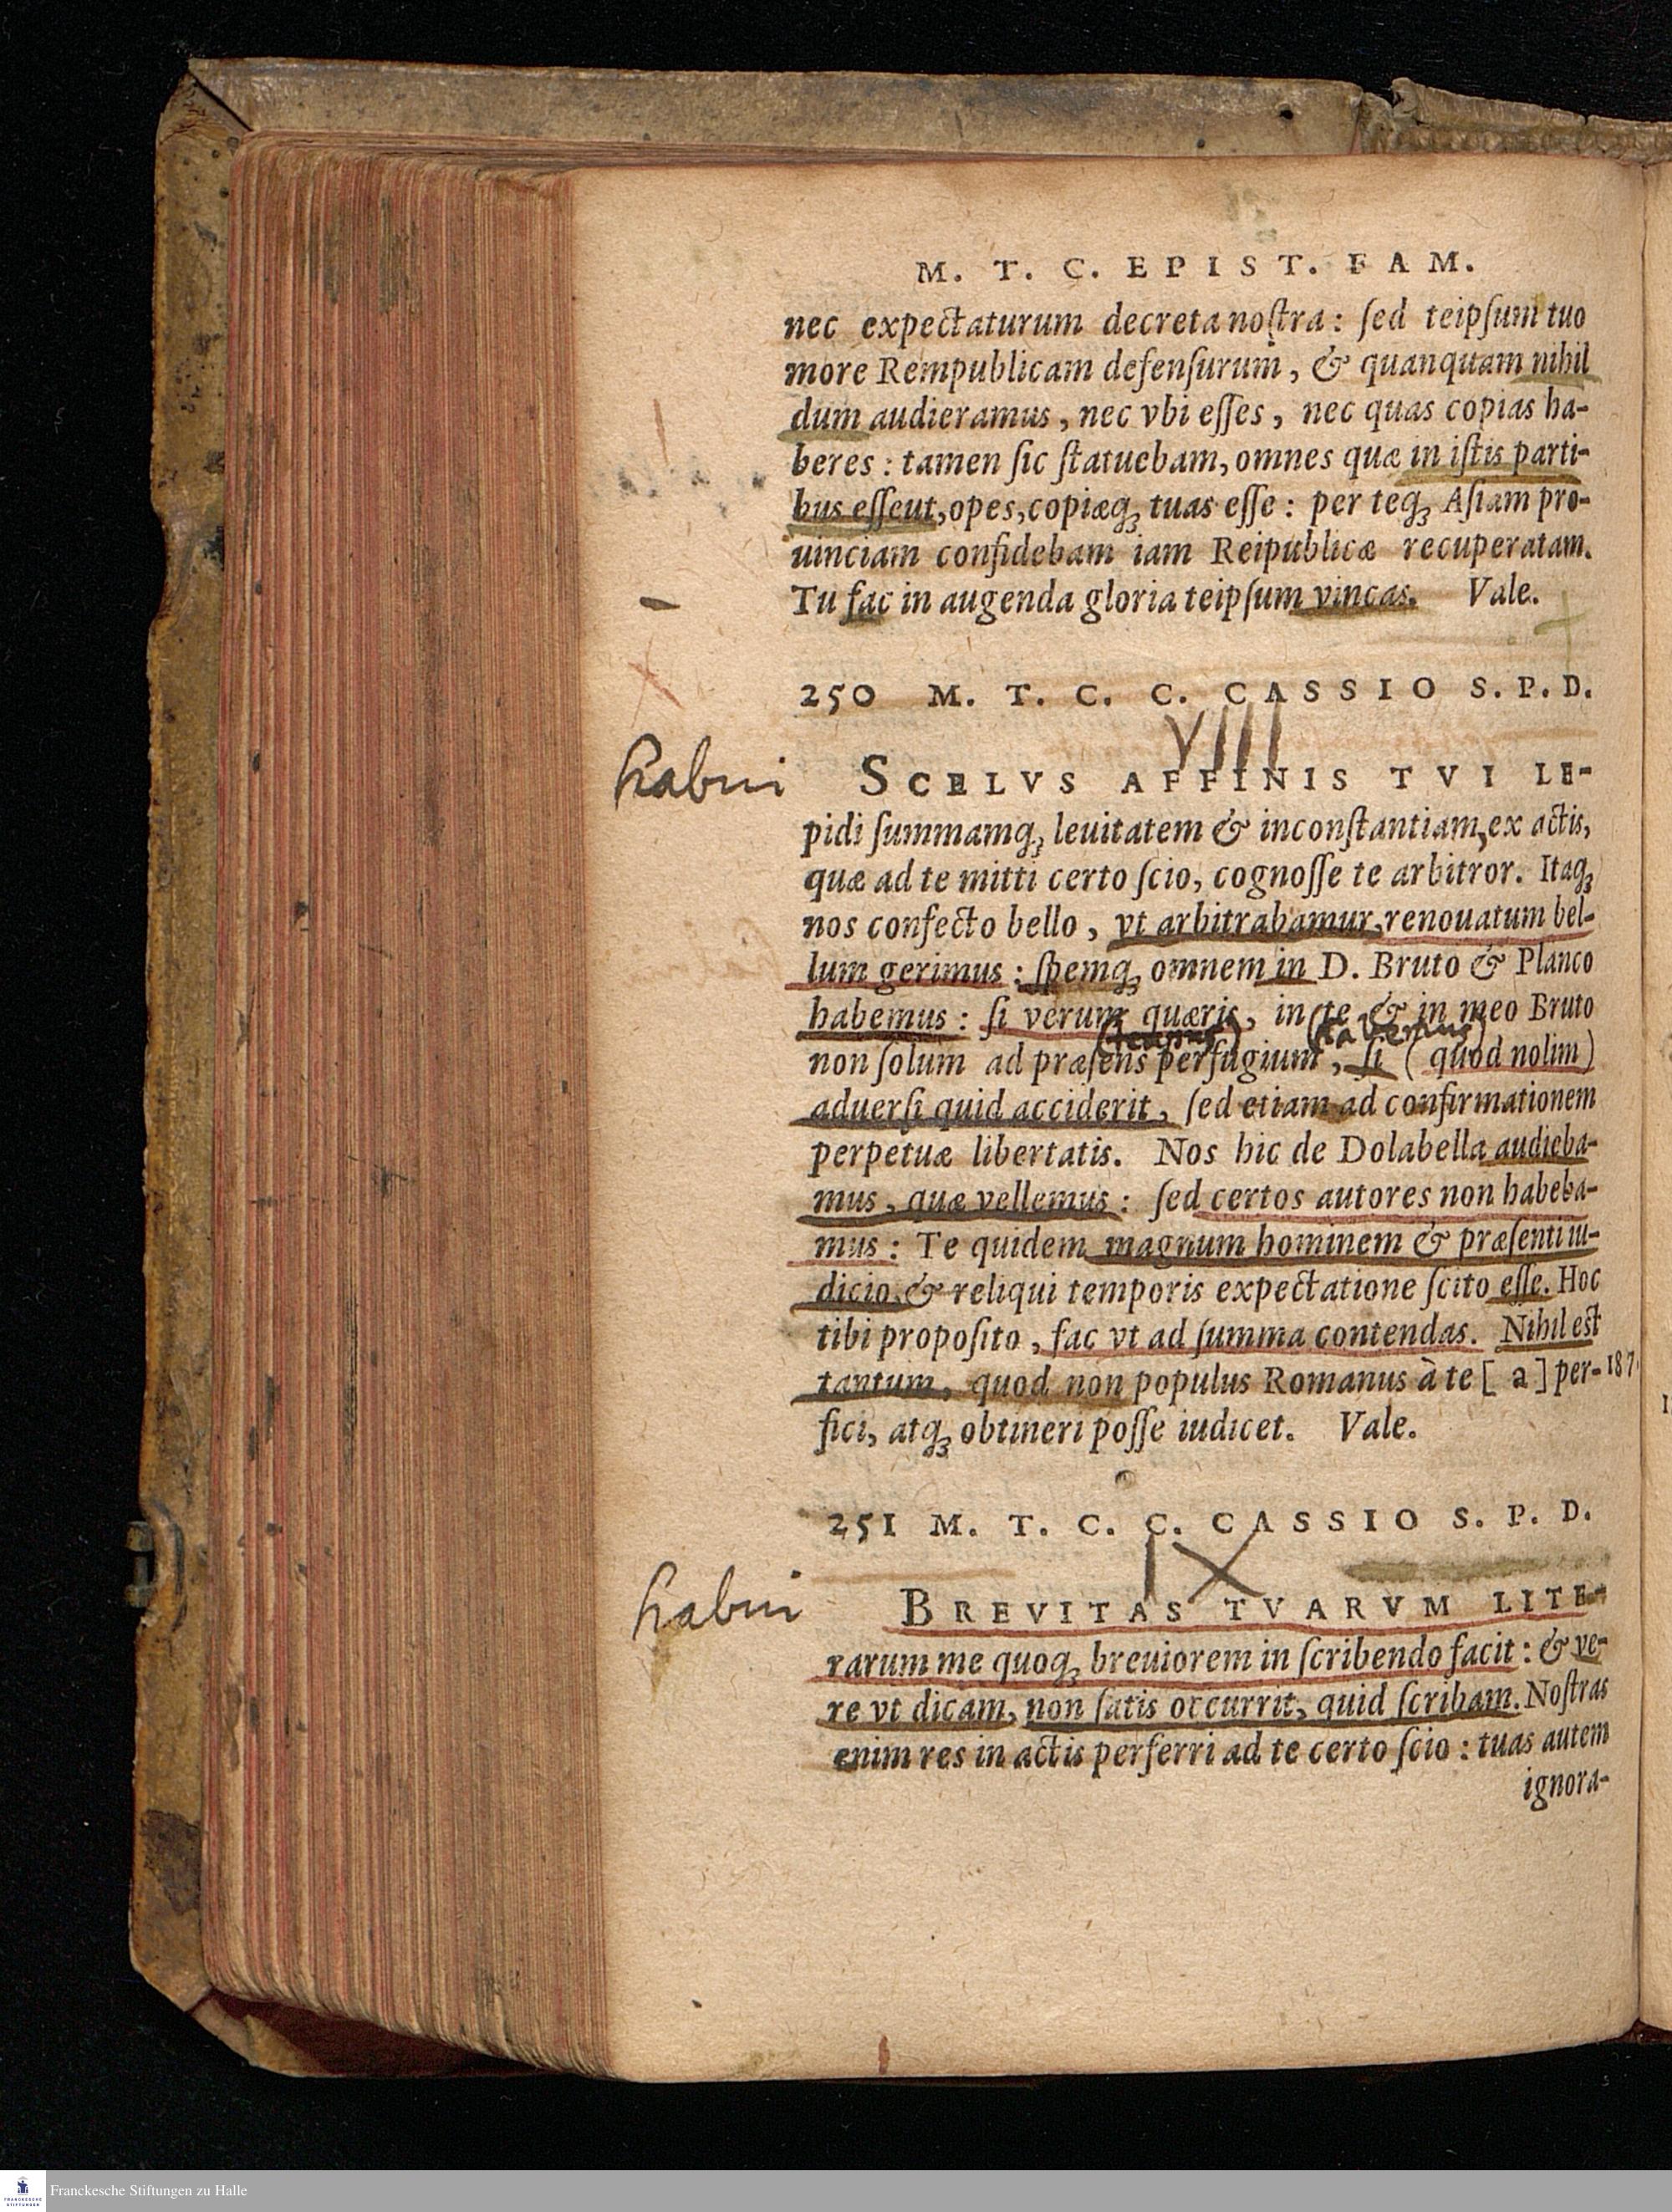 M. T. C. EPIST. FAM.
nec expectaturum decreta noſtra: ſed teipſum tuo
more Rempublicam defenſurum, & quanquam nihil
dum audieramus, nec vbi eſſes, nec quas copias ha-
beres: tamen ſic ſtatuebam, omnes quæ in iſtis parti-
bus eſſeut, opes, copiæq́; tuas eſſe: per teq́; Aſiam pro-
uinciam confidebam iam Reipublicæ recuperatam.
Tu fac in augenda gloria teipſum vincas. Vale.
250 M. T. C. C. CASSIO S. P. D.
VIII
habui
SCELVS AFFINIS TVI LE-
pidi ſummamq́; leuitatem & inconſtantiam, ex actis,
quæ ad te mitti certo ſcio, cognoſſe te arbitror. Itaq́;
nos confecto bello, vt arbitrabamur, renouatum bel-
lum gerimus: ſpemq́; omnem in D. Bruto & Planco
habemus: ſi verum quæris, in te & in meo Bruto
(habemus)
non ſolum ad præſens perfugium, ſi (quod nolim)
aduerſi quid acciderit, ſed etiam ad confirmationem
perpetuæ libertatis. Nos hic de Dolabella audieba-
mus, quæ vellemus: ſed certos autores non habeba-
mus: Te quidem magnum hominem & præſenti iu-
dicio, & reliqui temporis expectatione ſcito eſſe. Hoc
tibi propoſito, fac vt ad ſumma contendas. Nihil eſt
tantum, quod non populus Romanus à te [a] per- 187
fici, atq́; obtineri poſſe iudicet. Vale.
251 M. T. C. C. CASSIO S. P. D.
IX
habui
BREVITAS TVARVM LITE-
rarum me quoq́; breuiorem in ſcribendo facit: & ve-
re vt dicam, non ſatis occurrit, quid ſcribam. Noſtras
enim res in actis perferri ad te certo ſcio: tuas autem
ignora-
FRANCKESCHE STIFTUNGEN
Franckesche Stiftungen zu Halle